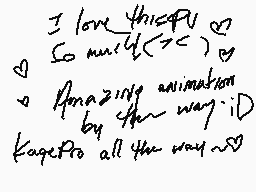 I love this PV ♡
So much (><) ♡
♡ Amazing animation
by the way :D
KagePro all the way ~♡